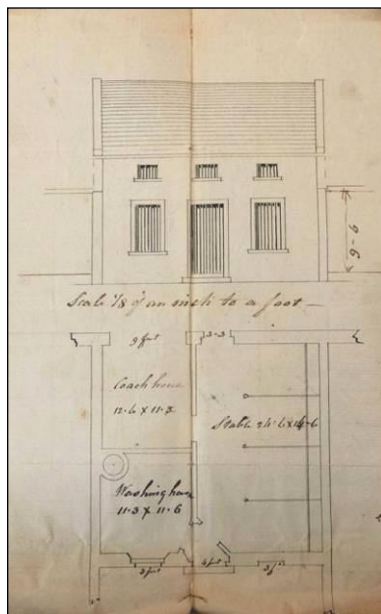 9-6
Scale 1/8 of an inch to a foot —
9 feet
3-3
Coach house
12-6 x 11-3
Stable 24-6 x 14-6
Washing house
11-3 x 11-6
3 feet
4 feet
3 f